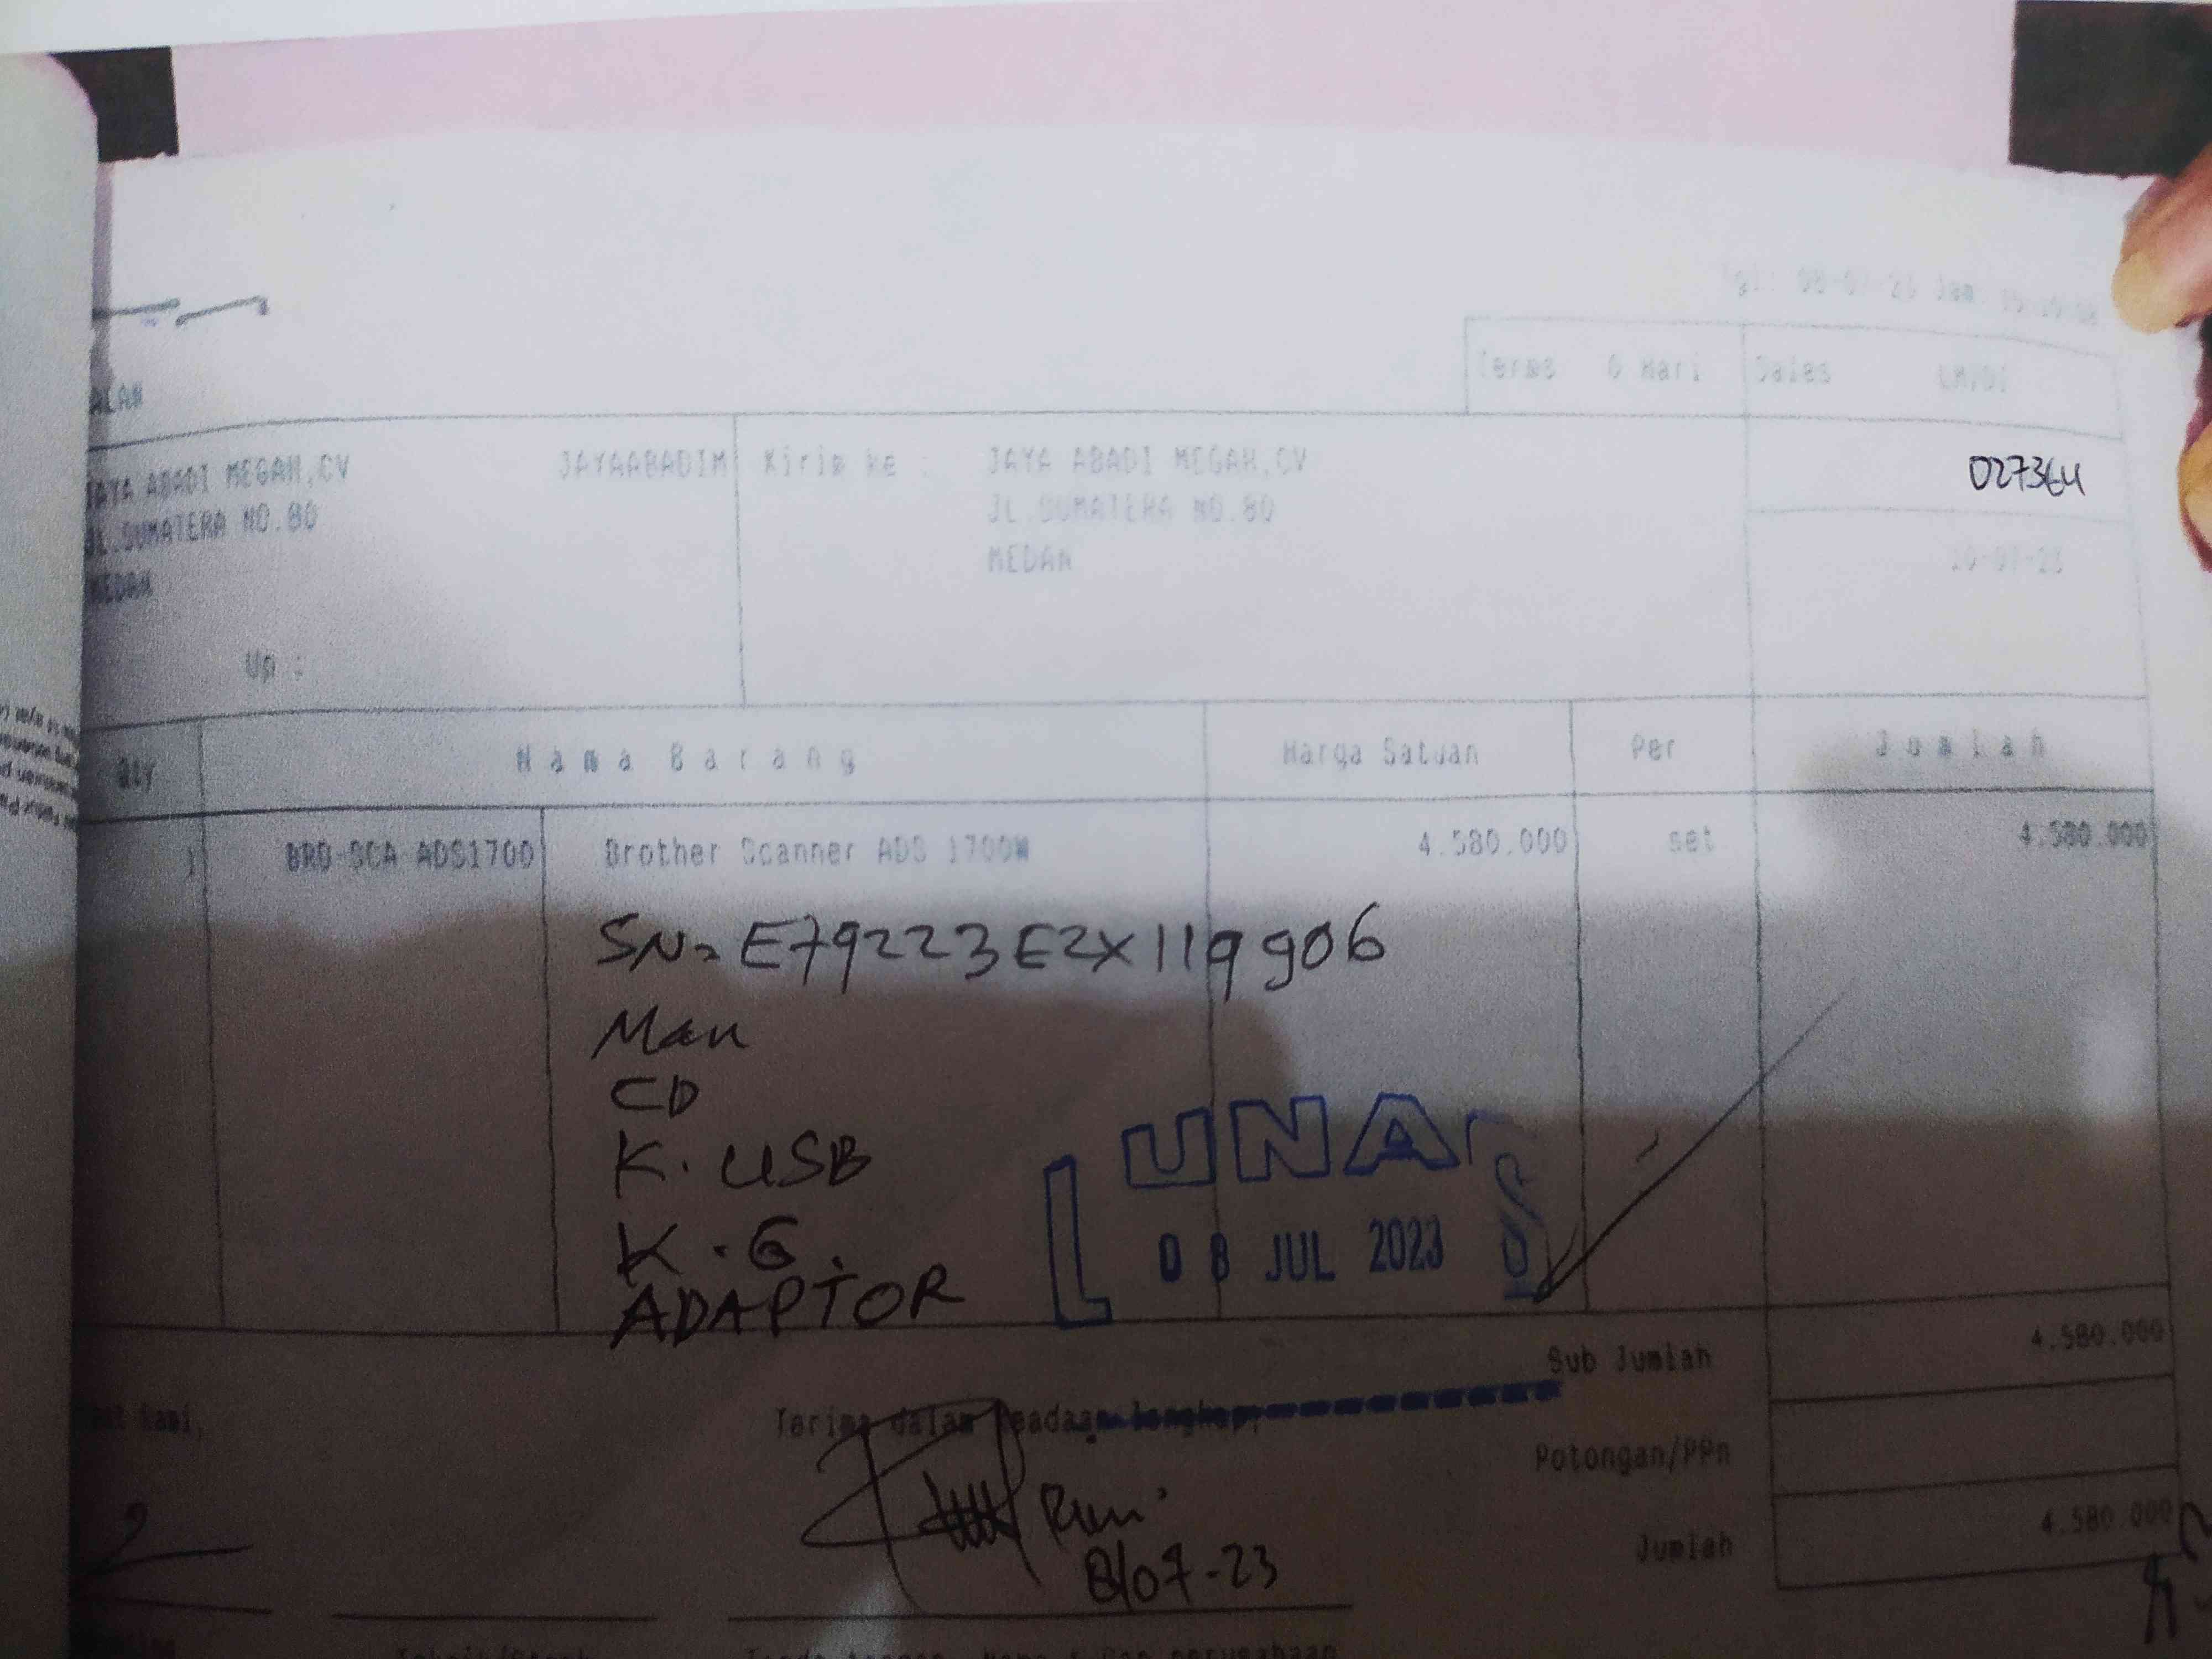 Tgl: 08-07-23 Jam
Terms 0 Hari Sales
ALAN
JAYA ABADI MEGAH,CV JAYAABADIM Kirim ke : JAYA ABADI MEGAH,CV
027364
JL.SUMATERA NO.80 JL.SUMATERA NO.80
MEDAN MEDAN
10-07-23
Up :
Qty Nama Barang Harga Satuan Per Jumlah
1 BRO-SCA ADS1700 Brother Scanner ADS 1700W 4.580.000 set 4.580.000
SN= E79223E2X119906
Man
CD
K. USB
K.G.
ADAPTOR
LUNAS
08 JUL 2023
Sub Jumlah 4.580.000
Terima dalam keadaan lengkap,
Potongan/PPn
Jumlah 4.580.000
8/07-23